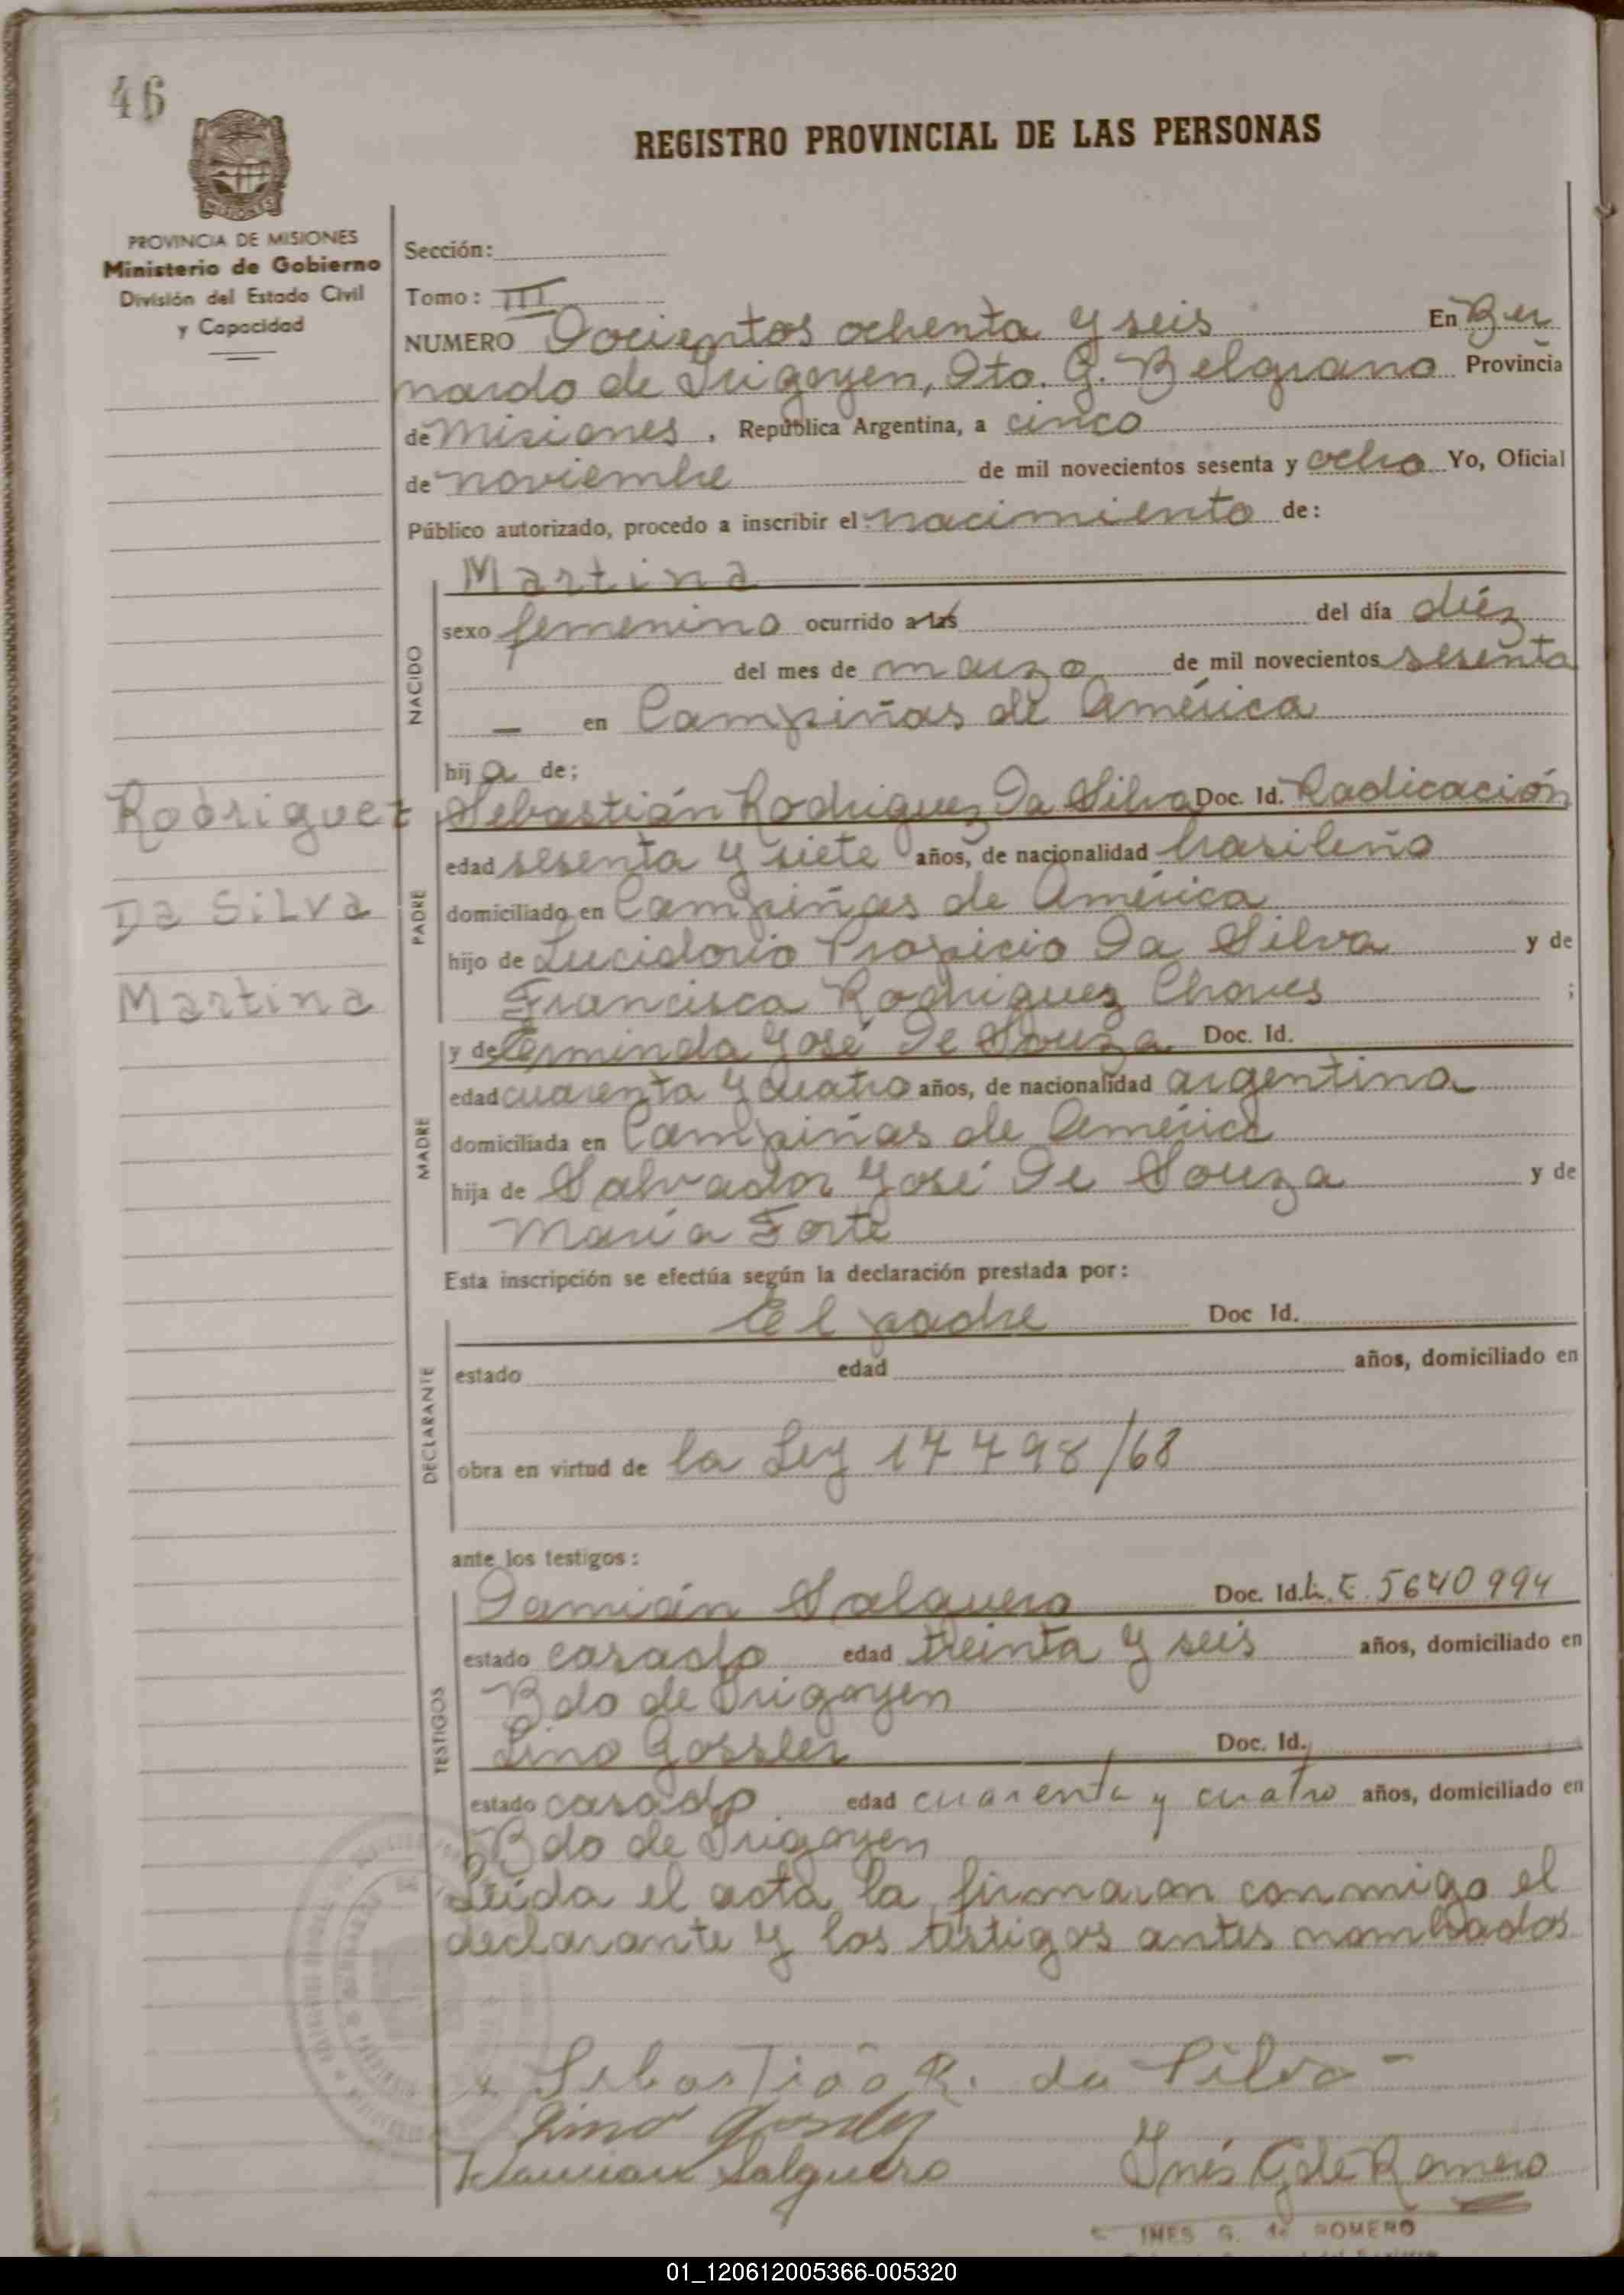 46
REGISTRO PROVINCIAL DE LAS PERSONAS
MISIONES
PROVINCIA DE MISIONES
Ministerio de Gobierno
División del Estado Civil
y Capacidad
Sección:
Tomo: III
NUMERO Docientos ochenta y seis En Ber
nardo de Irigoyen, Dto. G. Belgrano Provincia
de Misiones, República Argentina, a cinco
de noviembre de mil novecientos sesenta y ocho Yo, Oficial
Público autorizado, procedo a inscribir el nacimiento de:
Martina
NACIDO
sexo femenino ocurrido a las del día diéz
del mes de marzo de mil novecientos sesenta
— en Campiñas de América
hija de:
Rodriguez
Da Silva
Martina
PADRE
Sebastián Rodriguez Da Silva Doc. Id. Radicación
edad sesenta y siete años, de nacionalidad brasileño
domiciliado en Campiñas de América
hijo de Lucidorio Propicio Da Silva y de
Francisca Rodriguez Chaves ;
MADRE
y de Erminda José De Souza Doc. Id.
edad cuarenta y cuatro años, de nacionalidad argentina
domiciliada en Campiñas de América
hija de Salvador José De Souza y de
María Forte
Esta inscripción se efectúa según la declaración prestada por:
DECLARANTE
El padre Doc Id.
estado edad años, domiciliado en
obra en virtud de la Ley 17498/68
ante los testigos:
TESTIGOS
Damián Salguero Doc. Id. L.E. 5640994
estado casado edad treinta y seis años, domiciliado en
Bdo de Irigoyen
Lino Gossler Doc. Id.
estado casado edad cuarenta y cuatro años, domiciliado en
Bdo de Irigoyen
Leída el acta, la firmaron conmigo el
declarante y los testigos antes nombrados
Sebastião R. da Silva
Lino Gossler
Damian Salguero
Inés G de Romero
INES G. de ROMERO
01_120612005366-005320